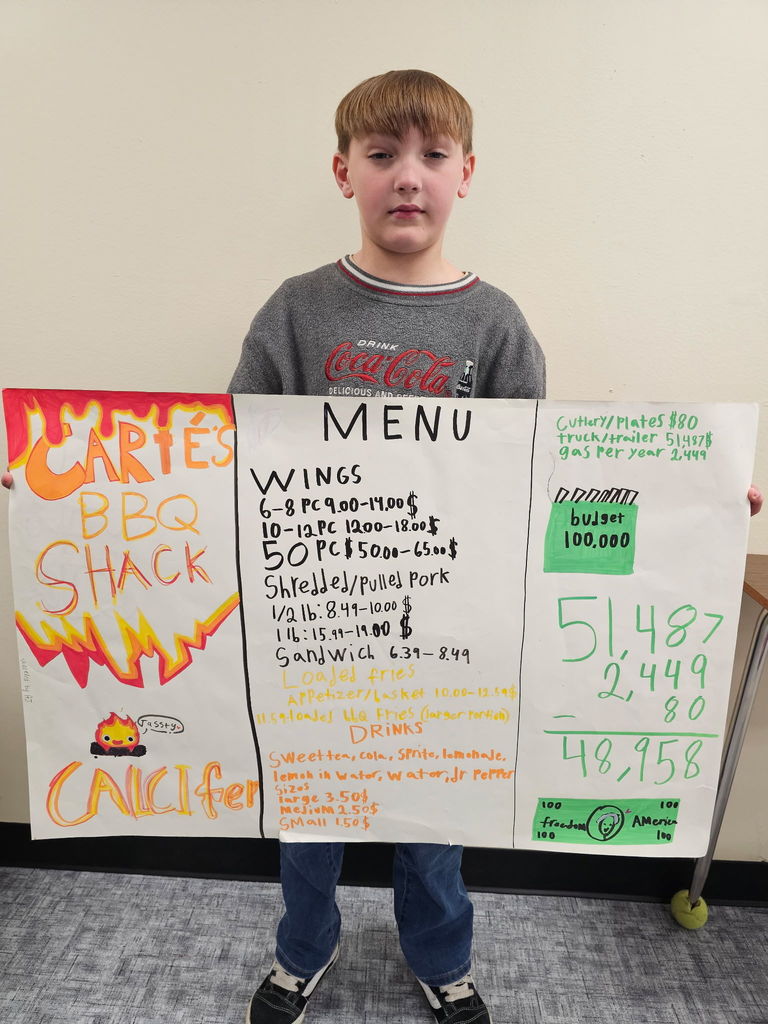 DRINK
Coca-Cola
CARtÉ'S
BBQ
SHACK
Jassty
CALCIfer
MENU
WINGS
6-8 PC 9.00-14.00 $
10-12 PC 12.00-18.00 $
50 PC $ 50.00-65.00 $
Shredded/pulled pork
1/2 lb: 8.49-10.00 $
1 lb: 15.99-19.00 $
Sandwich 6.39-8.49
Loaded fries
Appetizer/basket 10.00-12.59$
11.59-loaded bbq fries (larger portion)
DRiNKS
Sweet tea, cola, Sprite, lemonade,
lemon in water, water, Jr pepper
Sizes
large 3.50$
Medium 2.50$
Small 1.50$
Cutlery/plates $80
truck/trailer 51,487$
gas per year 2,449
budget
100,000
51,487
2,449
- 80
48,958
100 100
freedom America
100 100